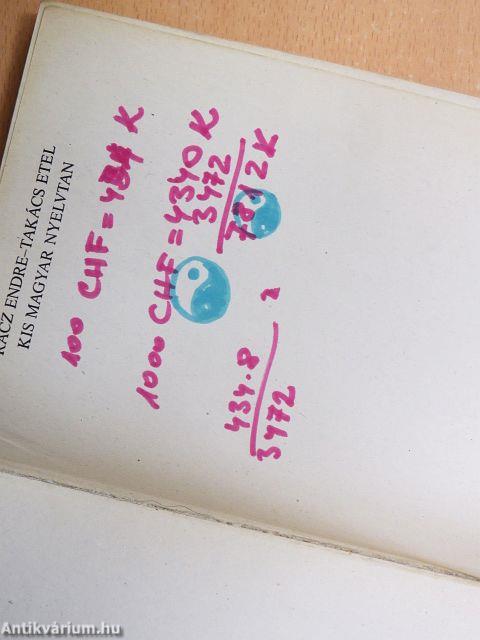 RÁCZ ENDRE–TAKÁCS ETEL
KIS MAGYAR NYELVTAN
100 CHF = 434 K
1000 CHF = 4340 K
3472
7812 K
434.8
3472
Antikvárium.hu